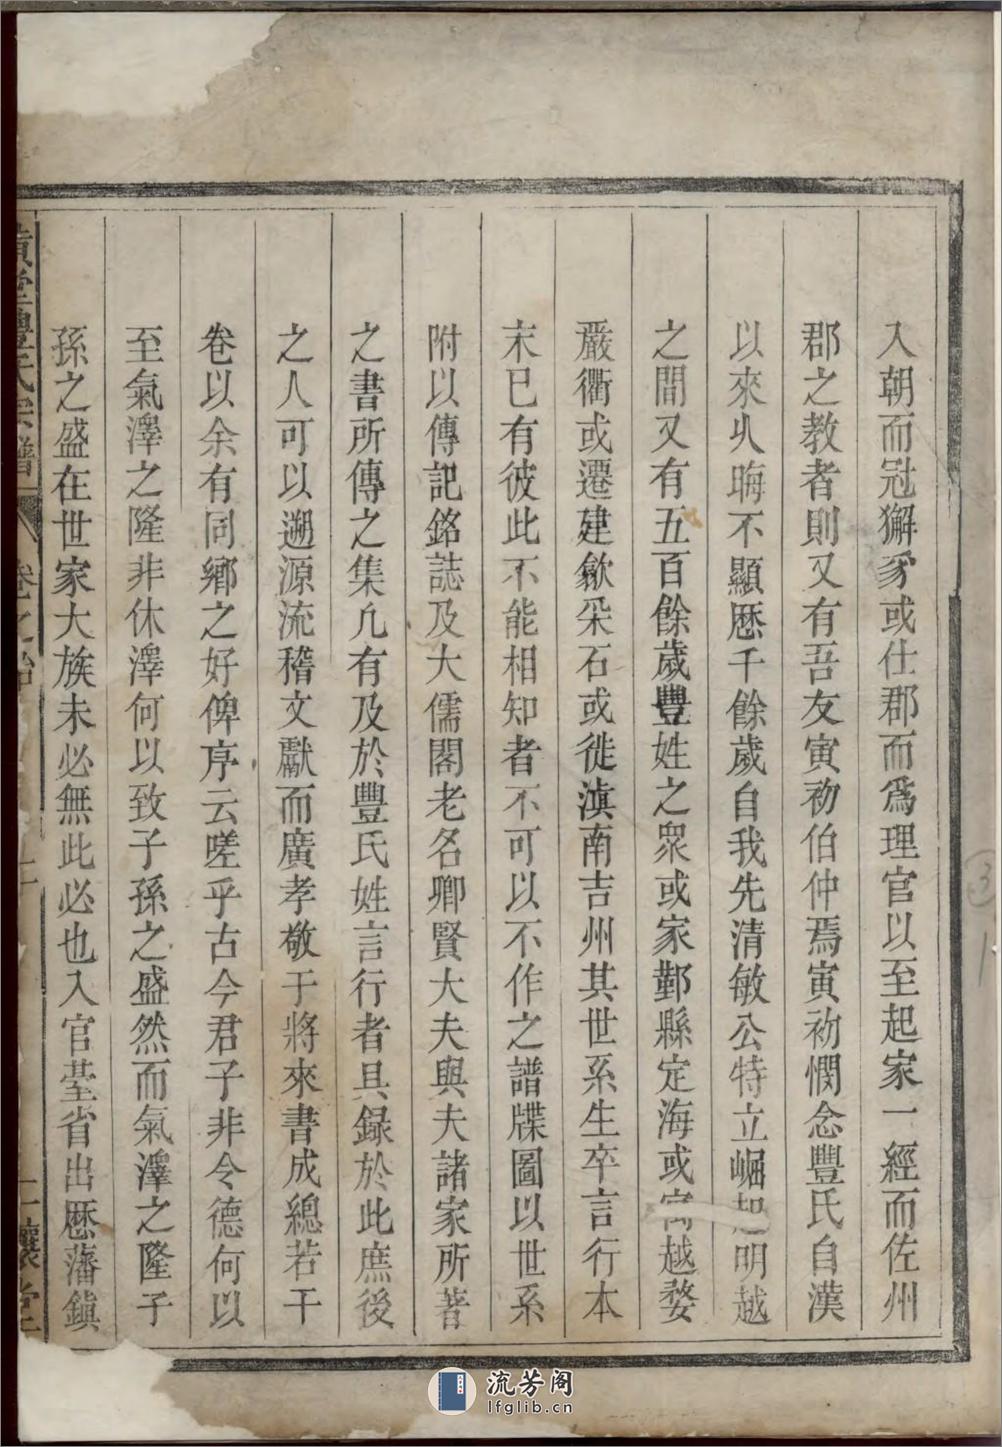 入朝而冠獬豸或仕郡而爲理官以至起家一經而佐州
郡之教者則又有吾友寅初伯仲焉寅初憫念豐氏自漢
以來乆晦不顯歷千餘歲自我先清敏公特立崛起明越
之間又有五百餘歲豐姓之衆或家鄞縣定海或寓越婺
嚴衢或遷建歙采石或徙滇南吉州其世系生卒言行本
末已有彼此不能相知者不可以不作之譜牒圖以世系
附以傳記銘誌及大儒閣老名卿賢大夫與夫諸家所著
之書所傳之集凢有及於豐氏姓言行者具録於此庶後
之人可以遡源流稽文獻而廣孝敬于將來書成總若干
卷以余有同鄉之好俾序云嗟乎古今君子非令德何以
至氣澤之隆非休澤何以致子孫之盛然而氣澤之隆子
孫之盛在世家大族未必無此必也入官臺省出歷藩鎮
豐氏宗譜 卷之 堂
流芳阁
lfglib.cn